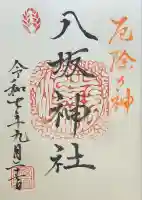 厄除の神
八坂神社
令和七年九月二日